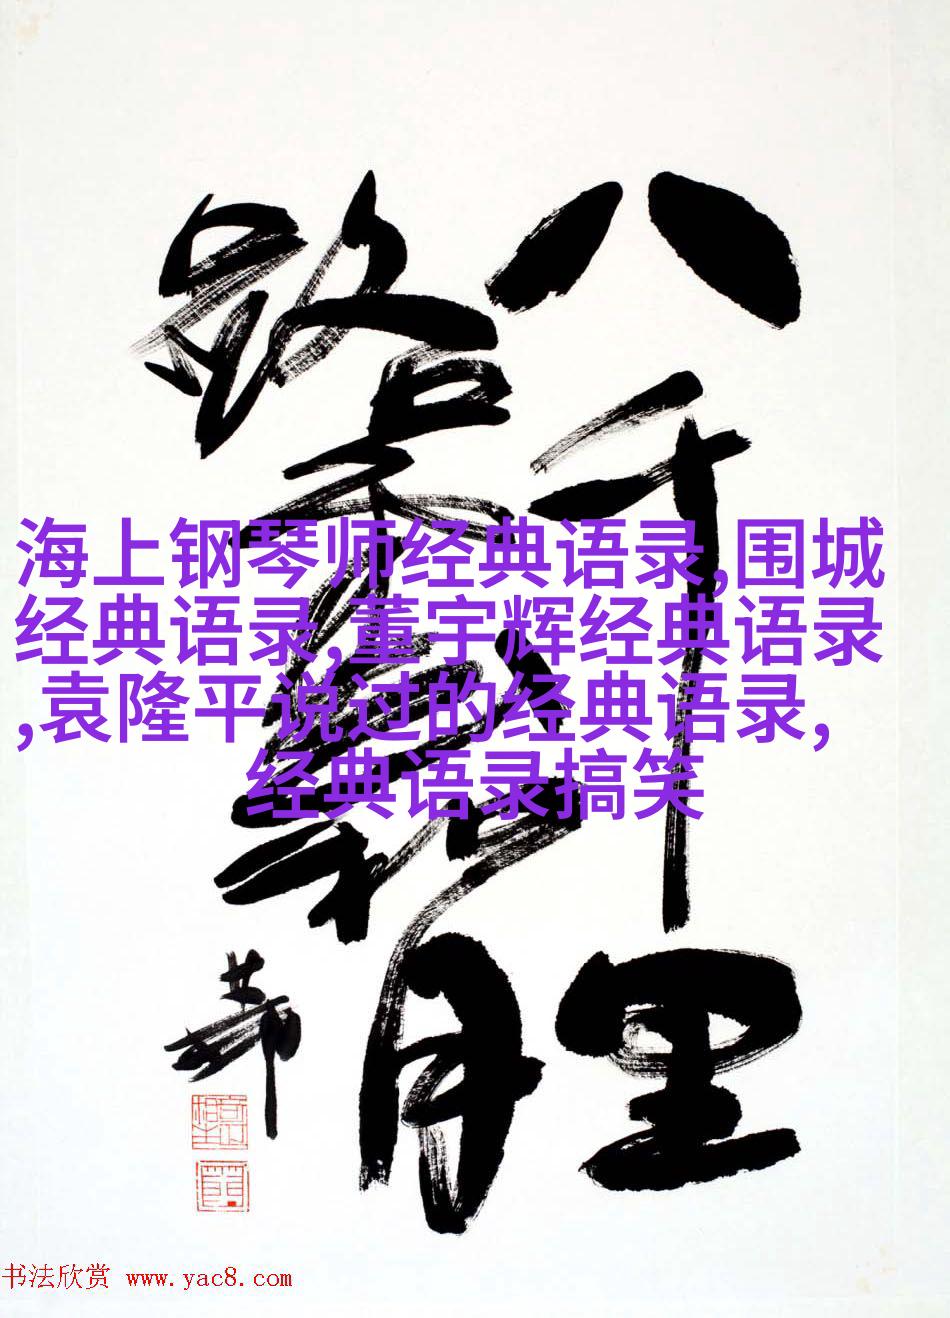 八千里
路雲和月
海上钢琴师经典语录,围城
经典语录,董宇辉经典语录
,袁隆平说过的经典语录,
经典语录搞笑
书法欣赏 www.yac8.com